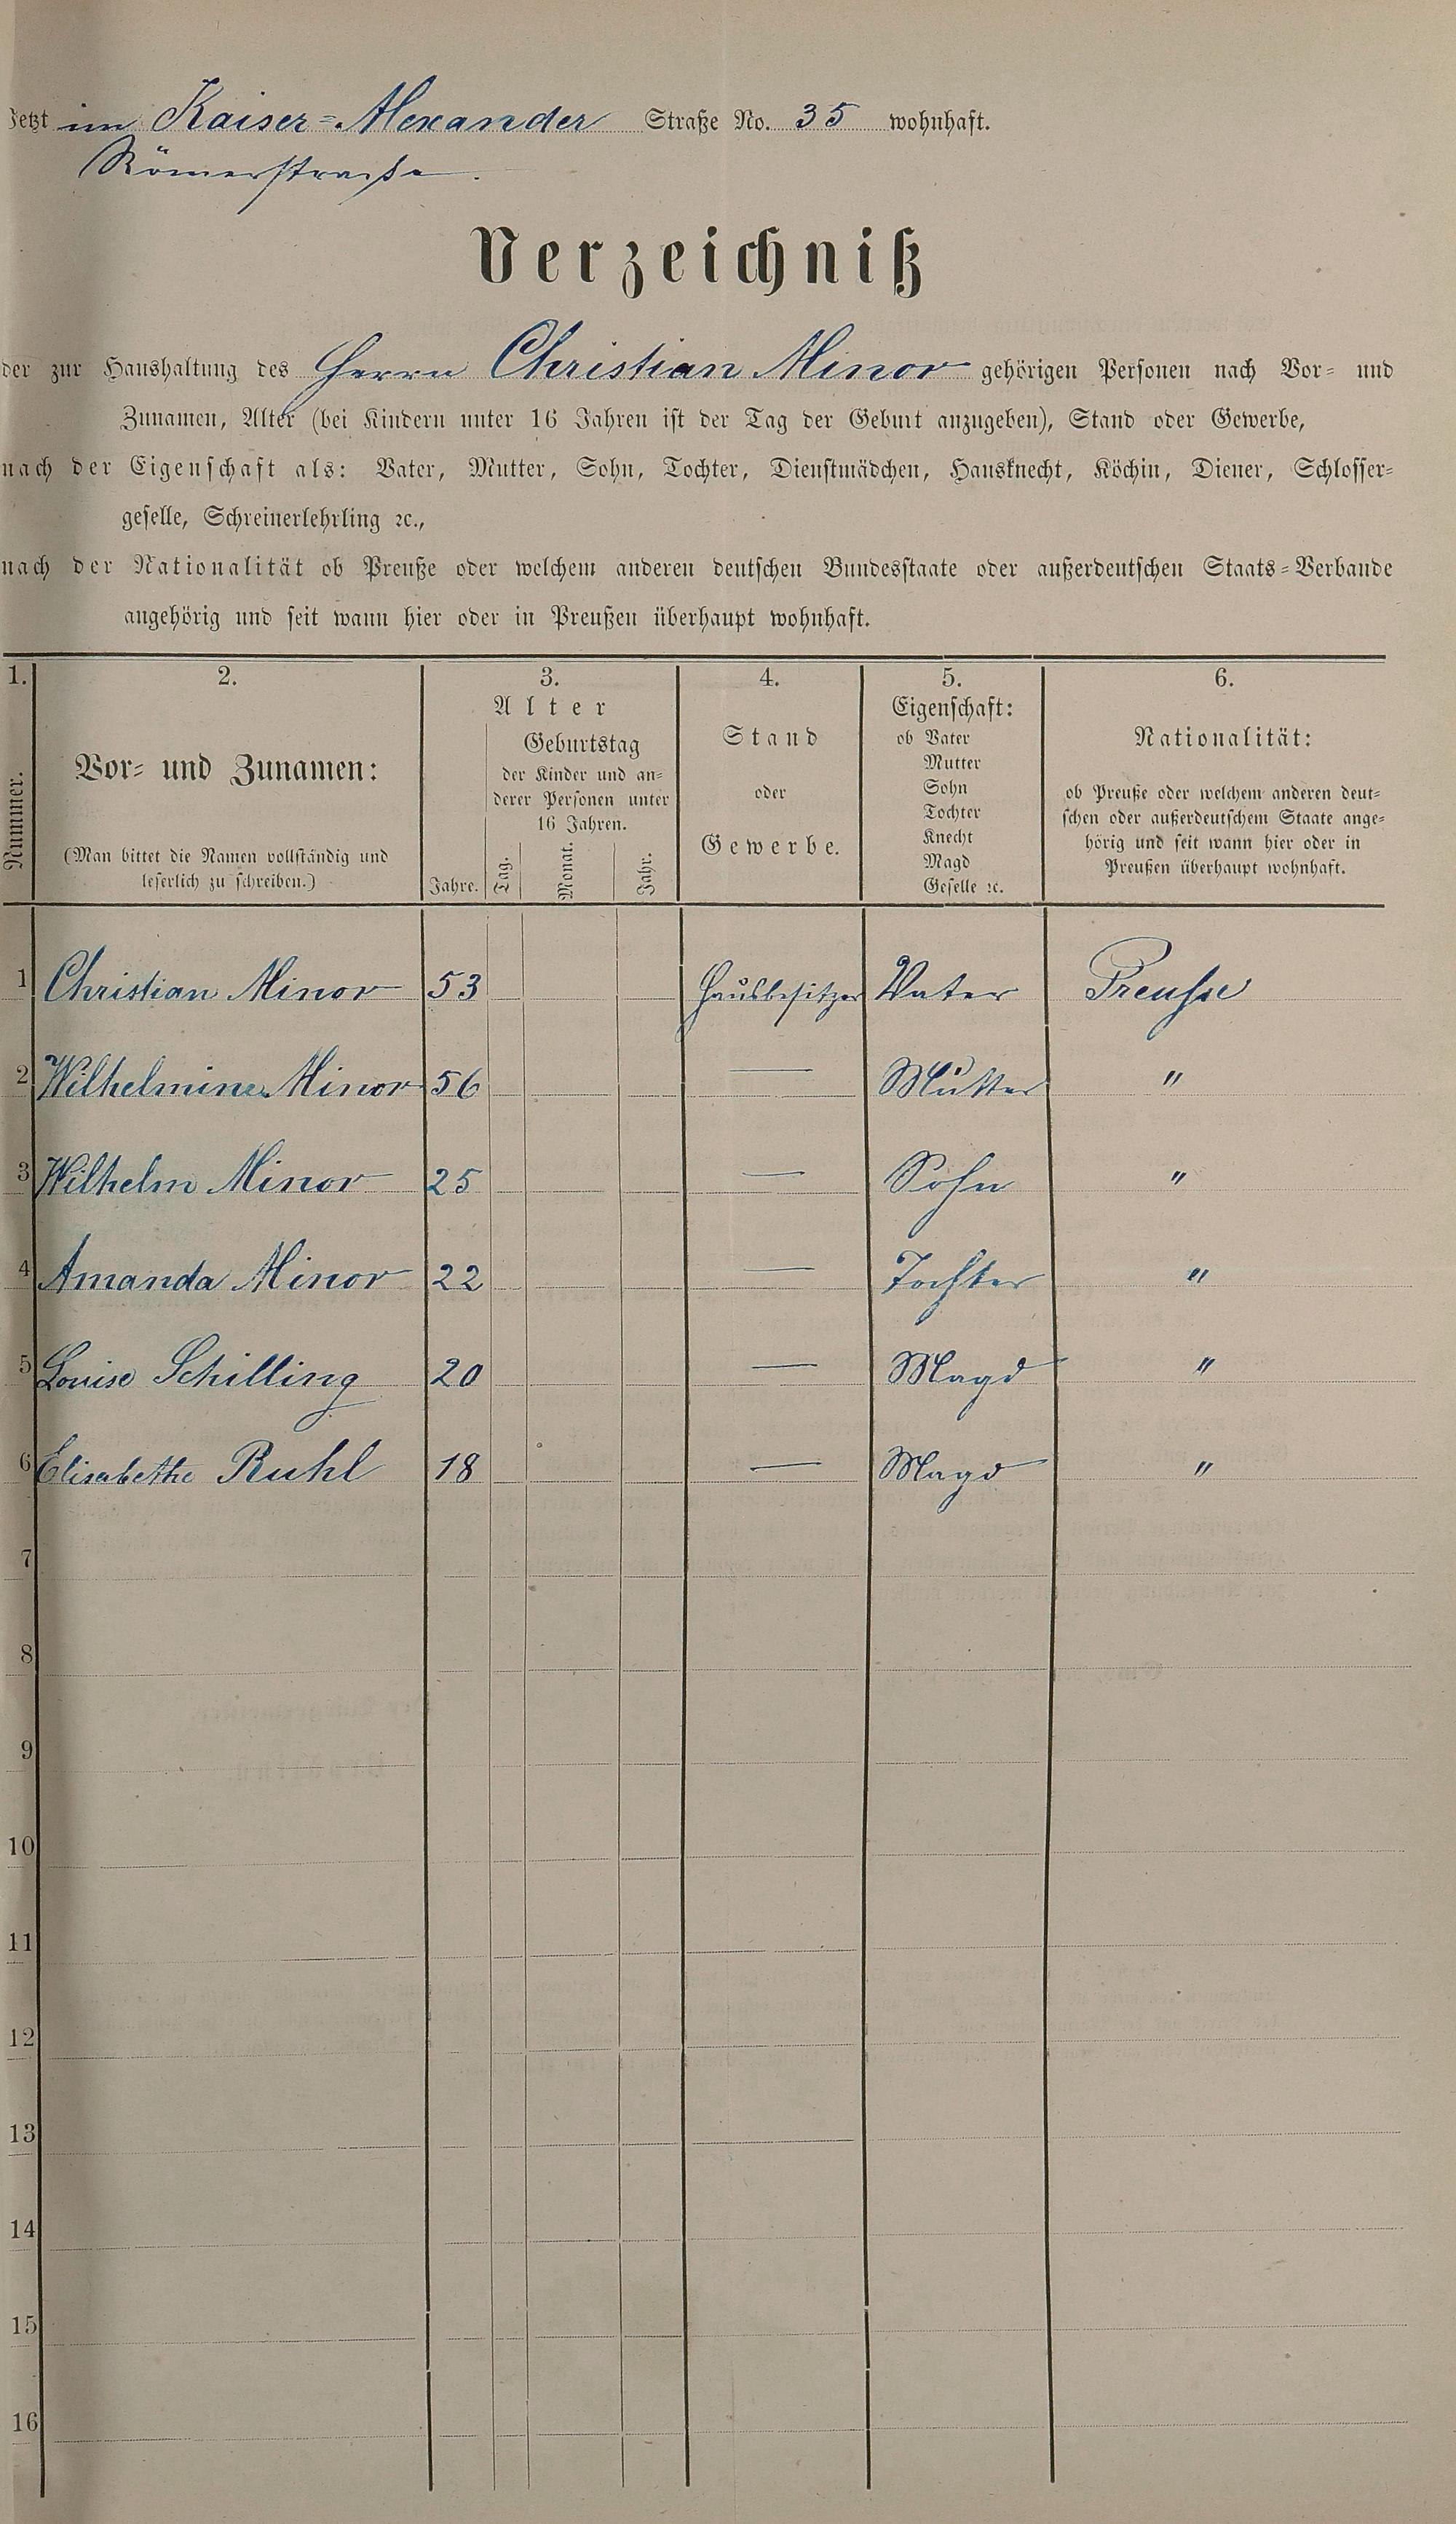 Jetzt im Kaiser-Alexander Straße No. 35 wohnhaft.
Römerstraße.
Verzeichniß
der zur Haushaltung des Herrn Christian Minor gehörigen Personen nach Vor- und
Zunamen, Alter (bei Kindern unter 16 Jahren ist der Tag der Geburt anzugeben), Stand oder Gewerbe,
nach der Eigenschaft als: Vater, Mutter, Sohn, Tochter, Dienstmädchen, Hausknecht, Köchin, Diener, Schlosser-
geselle, Schreinerlehrling ꝛc.,
nach der Nationalität ob Preuße oder welchem anderen deutschen Bundesstaate oder außerdeutschen Staats-Verbande
angehörig und seit wann hier oder in Preußen überhaupt wohnhaft.
1.
Nummer.
2.
Vor- und Zunamen:
(Man bittet die Namen vollständig und
leserlich zu schreiben.)
3.
Alter
Jahre.
Geburtstag
der Kinder und an-
derer Personen unter
16 Jahren.
Tag.
Monat.
Jahr.
4.
Stand
oder
Gewerbe.
5.
Eigenschaft:
ob Vater
Mutter
Sohn
Tochter
Knecht
Magd
Geselle ꝛc.
6.
Nationalität:
ob Preuße oder welchem anderen deut-
schen oder außerdeutschem Staate ange-
hörig und seit wann hier oder in
Preußen überhaupt wohnhaft.
1 Christian Minor 53 Hausbesitzer Vater Preusse
2 Wilhelmine Minor 56 — Mutter "
3 Wilhelm Minor 25 — Sohn "
4 Amanda Minor 22 — Tochter "
5 Louise Schilling 20 — Magd "
6 Elisabethe Ruhl 18 — Magd "
7
8
9
10
11
12
13
14
15
16